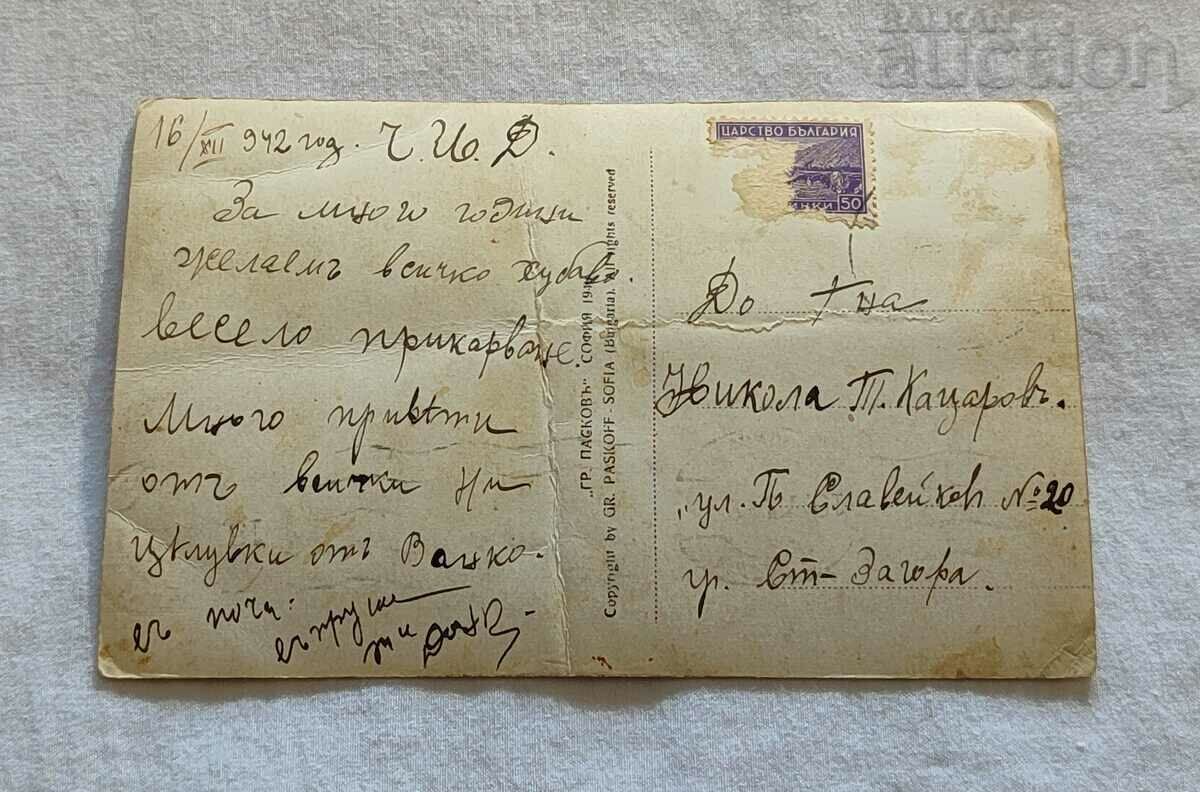 BALKAN
auction
16/XII 942 год. Ч.И.Д.
За много години
желаемъ всичко хубаво.
весело прикарване.
Много привѣти
отъ всички ни
цѣлувки отъ Ванко.
съ почи:
„ГР. ПАСКОВЪ" СОФИЯ
Copyright by GR. PASKOFF - SOFIA (Bulgaria). All rights reserved
ЦАРСТВО БЪЛГАРИЯ
50
До
Никола Т. Кацаровъ.
ул. П Славейков № 20
гр. Ст-Загора.